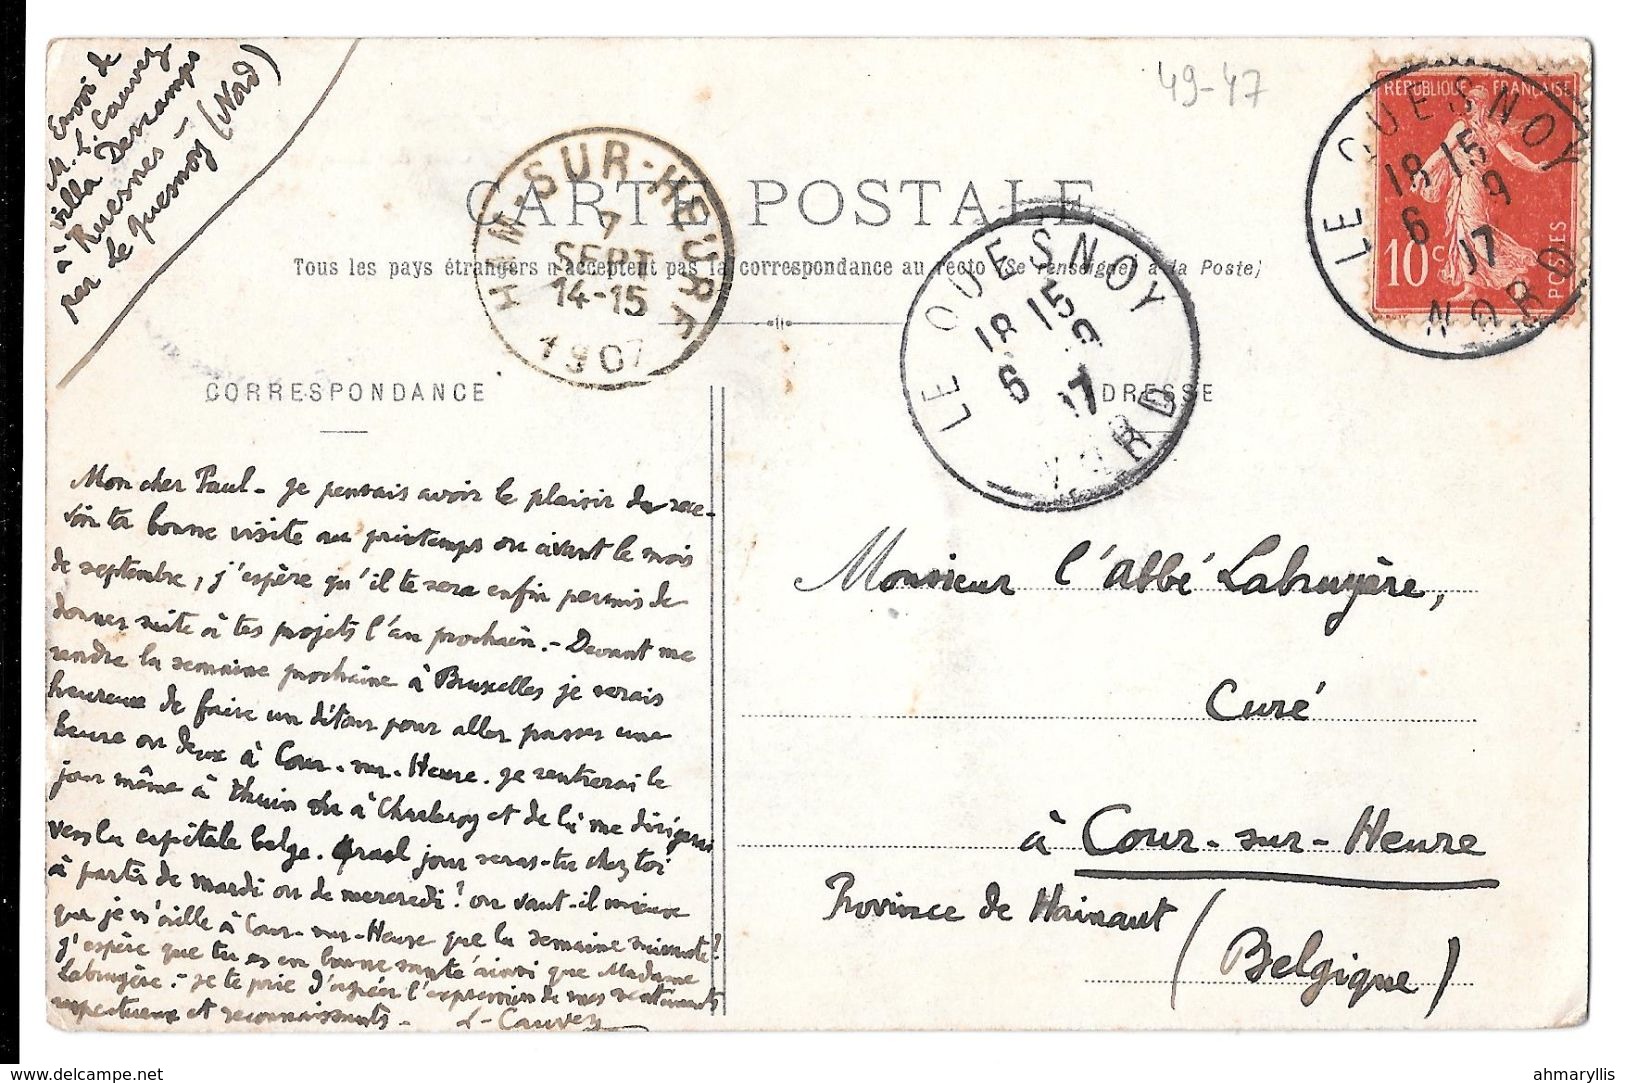 Envoi de
M. L. Cauvez
à Villa Descamps
Ruesnes -
par Le Quesnoy (Nord)
49-47
RÉPUBLIQUE FRANÇAISE
10 c
POSTES
LE QUESNOY
18 15
6 9
17
NORD
HAM-SUR-HEURE
7
SEPT
14-15
1907
CARTE POSTALE
Tous les pays étrangers n'acceptent pas la correspondance au recto (Se renseigner à la Poste)
LE QUESNOY
18 15
6 9
17
NORD
CORRESPONDANCE
ADRESSE
Mon cher Paul - je pensais avoir le plaisir de rece-
voir ta bonne visite au printemps ou avant le mois
de septembre, j'espère qu'il te sera enfin permis de
donner suite à tes projets l'an prochain. - Devant me
rendre la semaine prochaine à Bruxelles je serais
heureux de faire un détour pour aller passer une
heure ou deux à Cour-sur-Heure. je rentrerai le
jour même à Thuin ou à Charleroy et de là me dirigerai
vers la capitale belge. Quel jour seras-tu chez toi
à partir de mardi ou de mercredi? ou vaut-il mieux
que je n'aille à Cour-sur-Heure que la semaine suivante?
J'espère que tu es en bonne santé ainsi que Madame
Labruyère. - Je te prie d'agréer l'expression de mes sentiments
respectueux et reconnaissants - L. Cauvez
Monsieur l'abbé Labruyère,
Curé
à Cour-sur-Heure
Province de Hainaut
(Belgique)
ahmaryllis